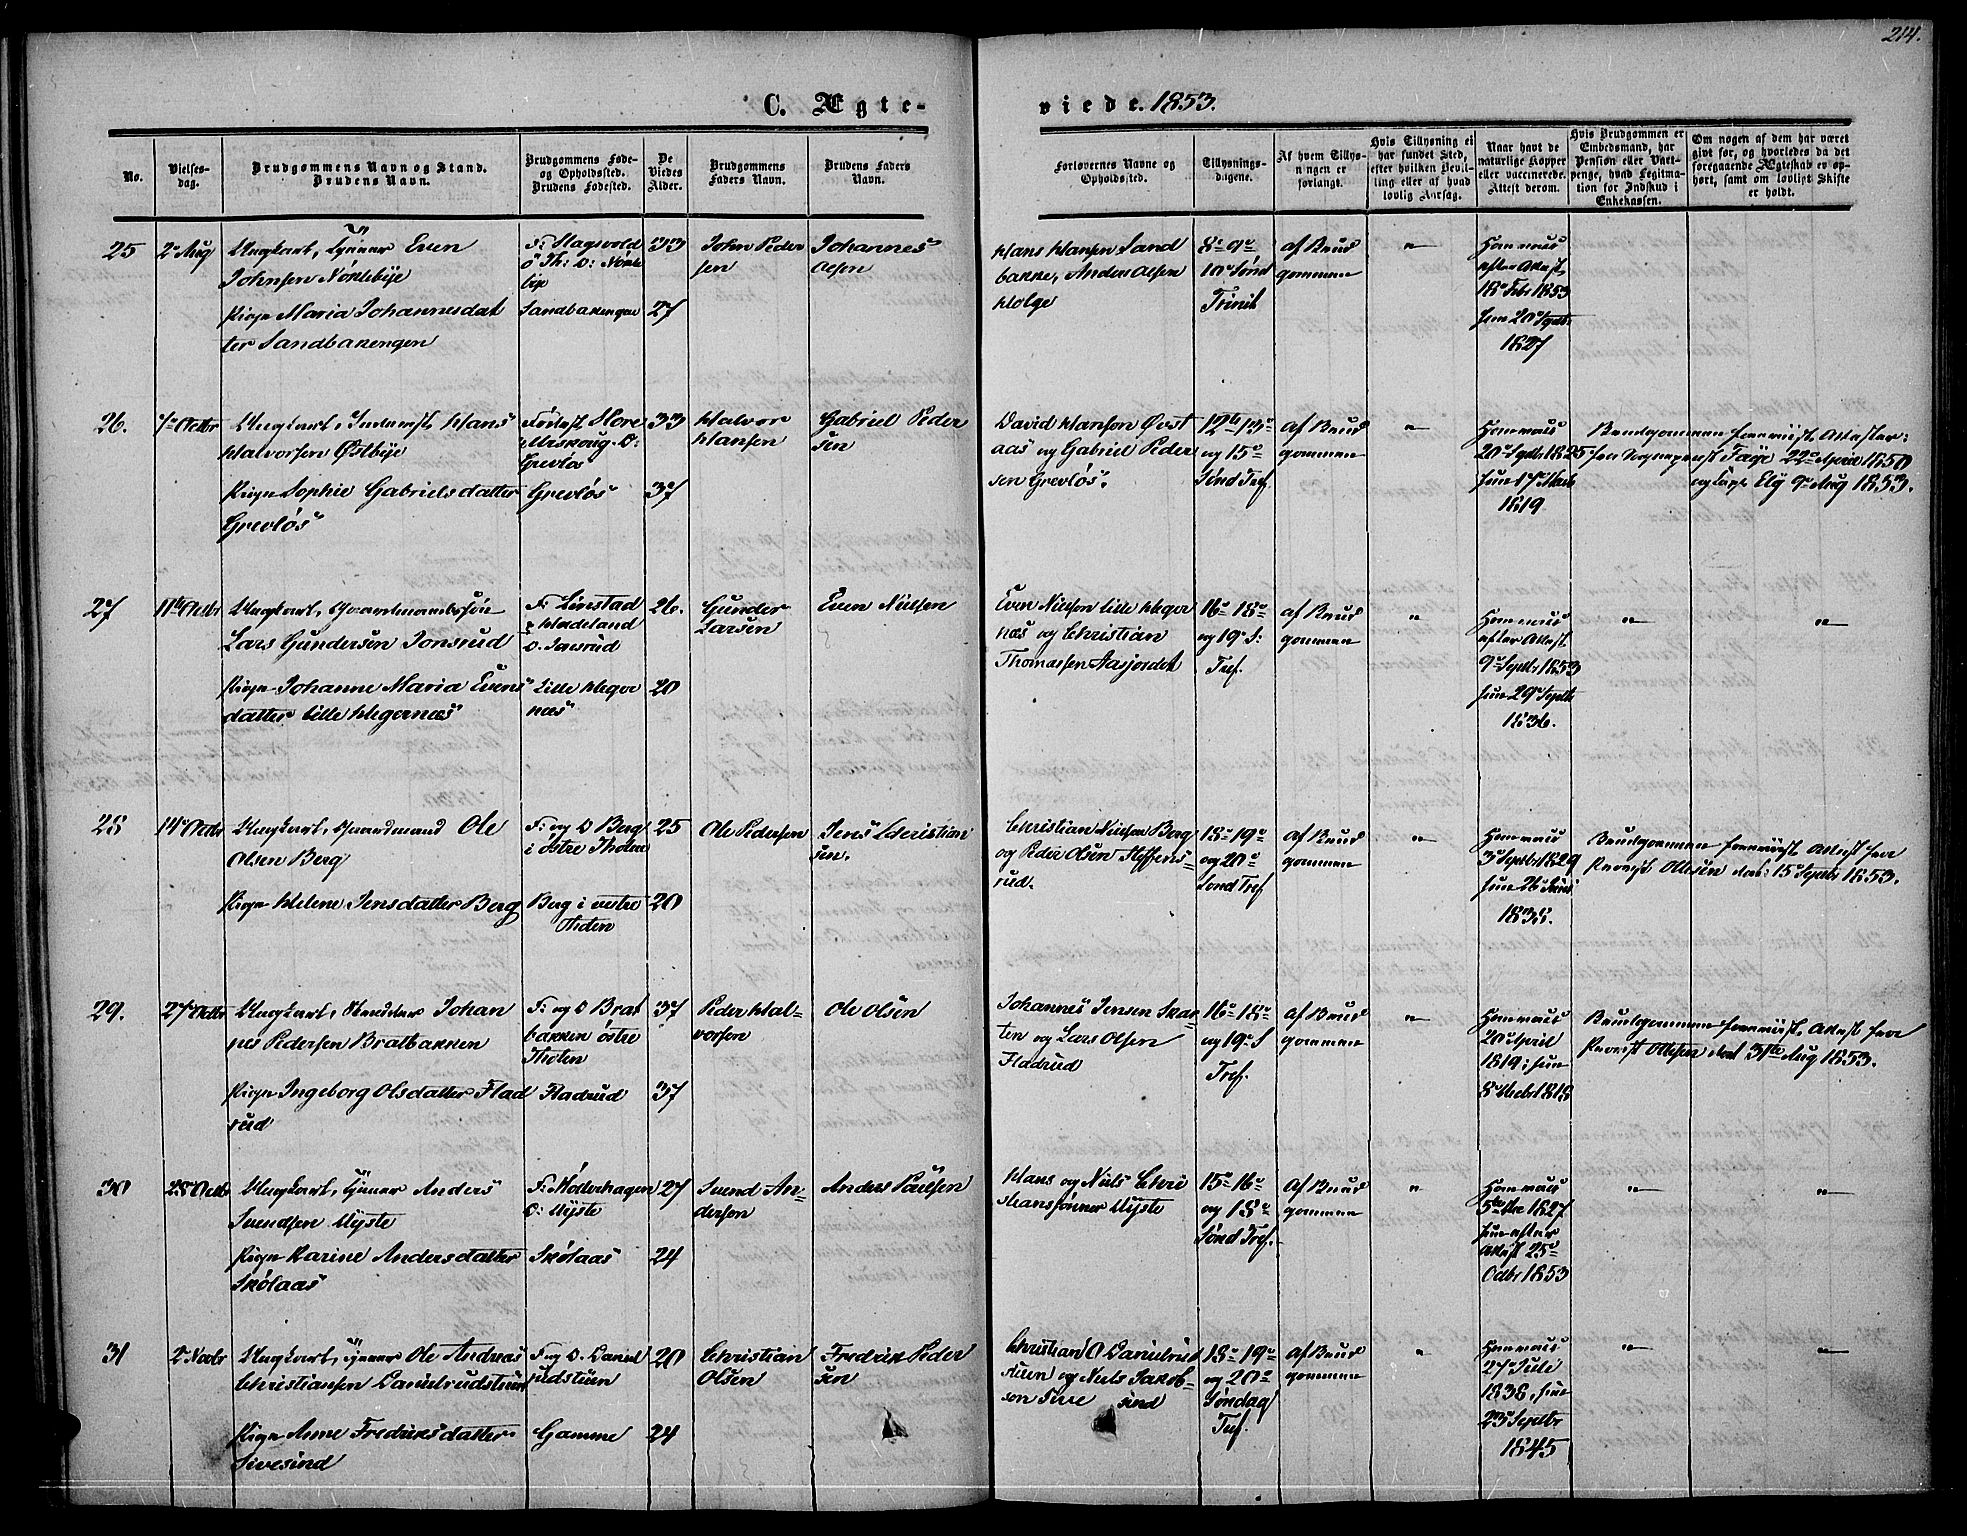 214.
C. Ægte-
viede. 1853.
No.
Vielses-
dag.
Brudgommens Navn og Stand.
Brudens Navn.
Brudgommens Føde-
og Opholdssted.
Brudens Fødested.
De
Viedes
Alder.
Brudgommens
Faders Navn.
Brudens Faders
Navn.
Forlovernes Navne og
Opholdssted.
Tillysnings-
dagene.
Af hvem Tillys-
ningen er
forlangt.
Hvis Tillysning ei
har fundet Sted,
efter hvilken Bevil-
ling eller af hvad
lovlig Aarsag.
Naar havt de
naturlige Kopper
eller vaccinerede.
Attest derom.
Hvis Brudgommen er
Embedsmand, har
Pension eller Vart-
penge, hvad Legitma-
tion for Indskud i
Enkekassen.
Om nogen af dem har været
givt før, og hvorledes da det
foregaaende Ægteskab er op-
hørt, samt om lovligt Skifte
er holdt.
25
2 Aug
Ungkarl, Tjener Even
Johnsen Nöklebye
Pigen Maria Johannesdat
ter Sandbakengen
Sandbakengen
27
John Peder
sen
Johannes
Olsen
Hans Hansen Sand
bakke, Anders Olsen
Holge
8 9
10 Sønd
Trinit
af Brud
gommen
"
Han vacc
efter Attest
18 Febr 1853
hun 20 Septbr
1827
26.
7 Octbr
Ungkarl, Inderst Hans
Halvorsen Östbye
Pigen Sophie Gabrielsdatter
Grevlös
Grevlös
33
37
Halvor
Hansen
Gabriel Peder
sen
David Hansen Øvst
aas og Gabriel Peder
sen Grevlös.
12te 13
og 15
Sønd Tref.
af Brud
gommen
"
Han vacc
20 Septbr 1825
1819
Brudgommen Attester:
22 April 1850
9 Aug 1853.
27
11 Octbr
Ungkarl, Gaardmandssön
Lars Gundersön Jonsrud
Pigen Johanne Maria Evens
datter Lille Hegernæs
F: Linstad
Hadeland
O. Jonsrud
Lille Heger
næs
26.
20
Gunder
Larsen
Even Nielsen
Even Nielsen Lille Heger
næs og Christian
Thomassen Aasjordet
16 18
og 19 S.
Tref.
af Brud
gommen
"
Han vacc
efter Attest
9 Septbr 1853
hun 29 Septbr
1836.
"
"
28
14 Octbr
Ungkarl, Gaardmand Ole
Olsen Berg
Pigen Helene Jensdatter Berg
F: og O Berg
i østre Thoten
Berg i vestre
Thoten
25
20
Ole Pedersen
Jens Christian
sen.
Christian Nielsen Berg
og Peder Olsen Steffens-
rud.
18 19
og 20
Sønd Tref
af Brud
gommen
"
Han vacc
3 Septbr 1829
hun 26 Juni
1835.
Brudgommen fremviist Attest fra
Provst Ottesen dat: 15 Septbr 1853.
29.
27 Octbr
Ungkarl, Johan
nes Pedersen Bratbakken
Pigen Ingeborg Olsdatter Flad
rud
F: og O Brat
bakken östre
Thoten
Fladrud
37
37
Peder Hal-
vorsen
Ole Olsen
Johannes Jensen Skar-
ten og Lars Olsen
Fladrud
16 18
og 19 S
Tref.
af Brud
gommen
"
Han vacc
20 April
1819; hun
1818
Brudgommen fremviist Attest fra
Provst Ottesen dat 31te Aug 1853.
30
28 Octbr
Ungkarl, Tjener Anders
Svendsen Myste
Pigen Karine Andersdatter
Skölaas
F: Möllerhagen
O: Myste
Skölaas
27
24
Svend An-
dersen
Anders Paulsen
Hans og Niels Chri
stiansönner Myste
15 16
og 18
Sønd Tref.
af Brud
gommen
"
Han vacc
1827
hun efter
Attest 25
Octbr 1853
"
"
31
2 Novbr
Ungkarl, Tjener Ole Andreas
Christiansen Danielrudstuen
Pigen Anne Fredriksdatter
Sivesind
F og O. Daniel
rudstuen
Gamme
20
24
Christian
Olsen
Fredrik Peder
sen
Christian O Danielrud
stuen og Niels Jakob-
sen Sive sind
18 19
og 20
Søndag
Tref.
af Brud
gommen
"
Han vacc
27 Juli
1838, hun
23 Septbr
1845
"
"